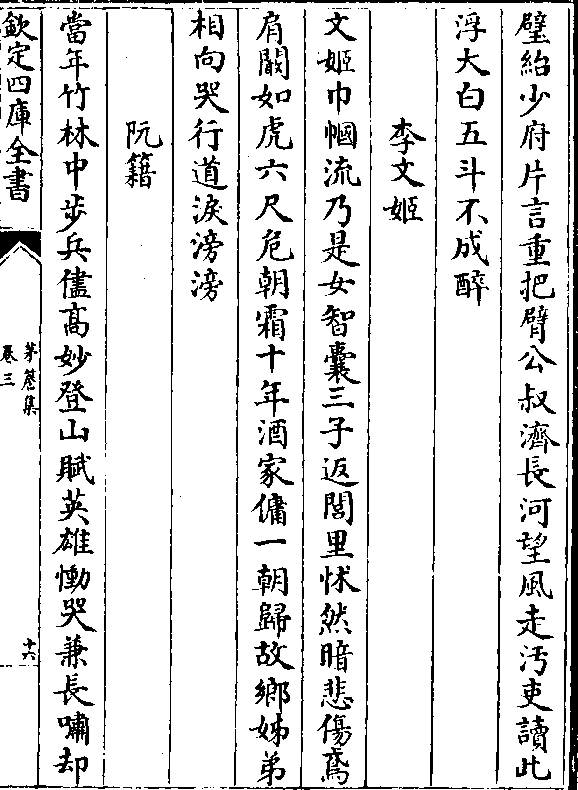 璧紿少府片言重把臂公叔濟長河望風走汚吏讀此
浮大白五斗不成醉
李文姬
文姬巾幗流乃是女智囊三子返閭里怵然暗悲傷鳶
肩闞如虎六尺危朝霜十年酒家傭一朝歸故鄉姊弟
相向哭行道淚滂滂
阮籍
當年竹林中步兵儘高妙登山賦英雄慟哭兼長嘯却
欽定四庫全書
茅簷集
卷三
十六